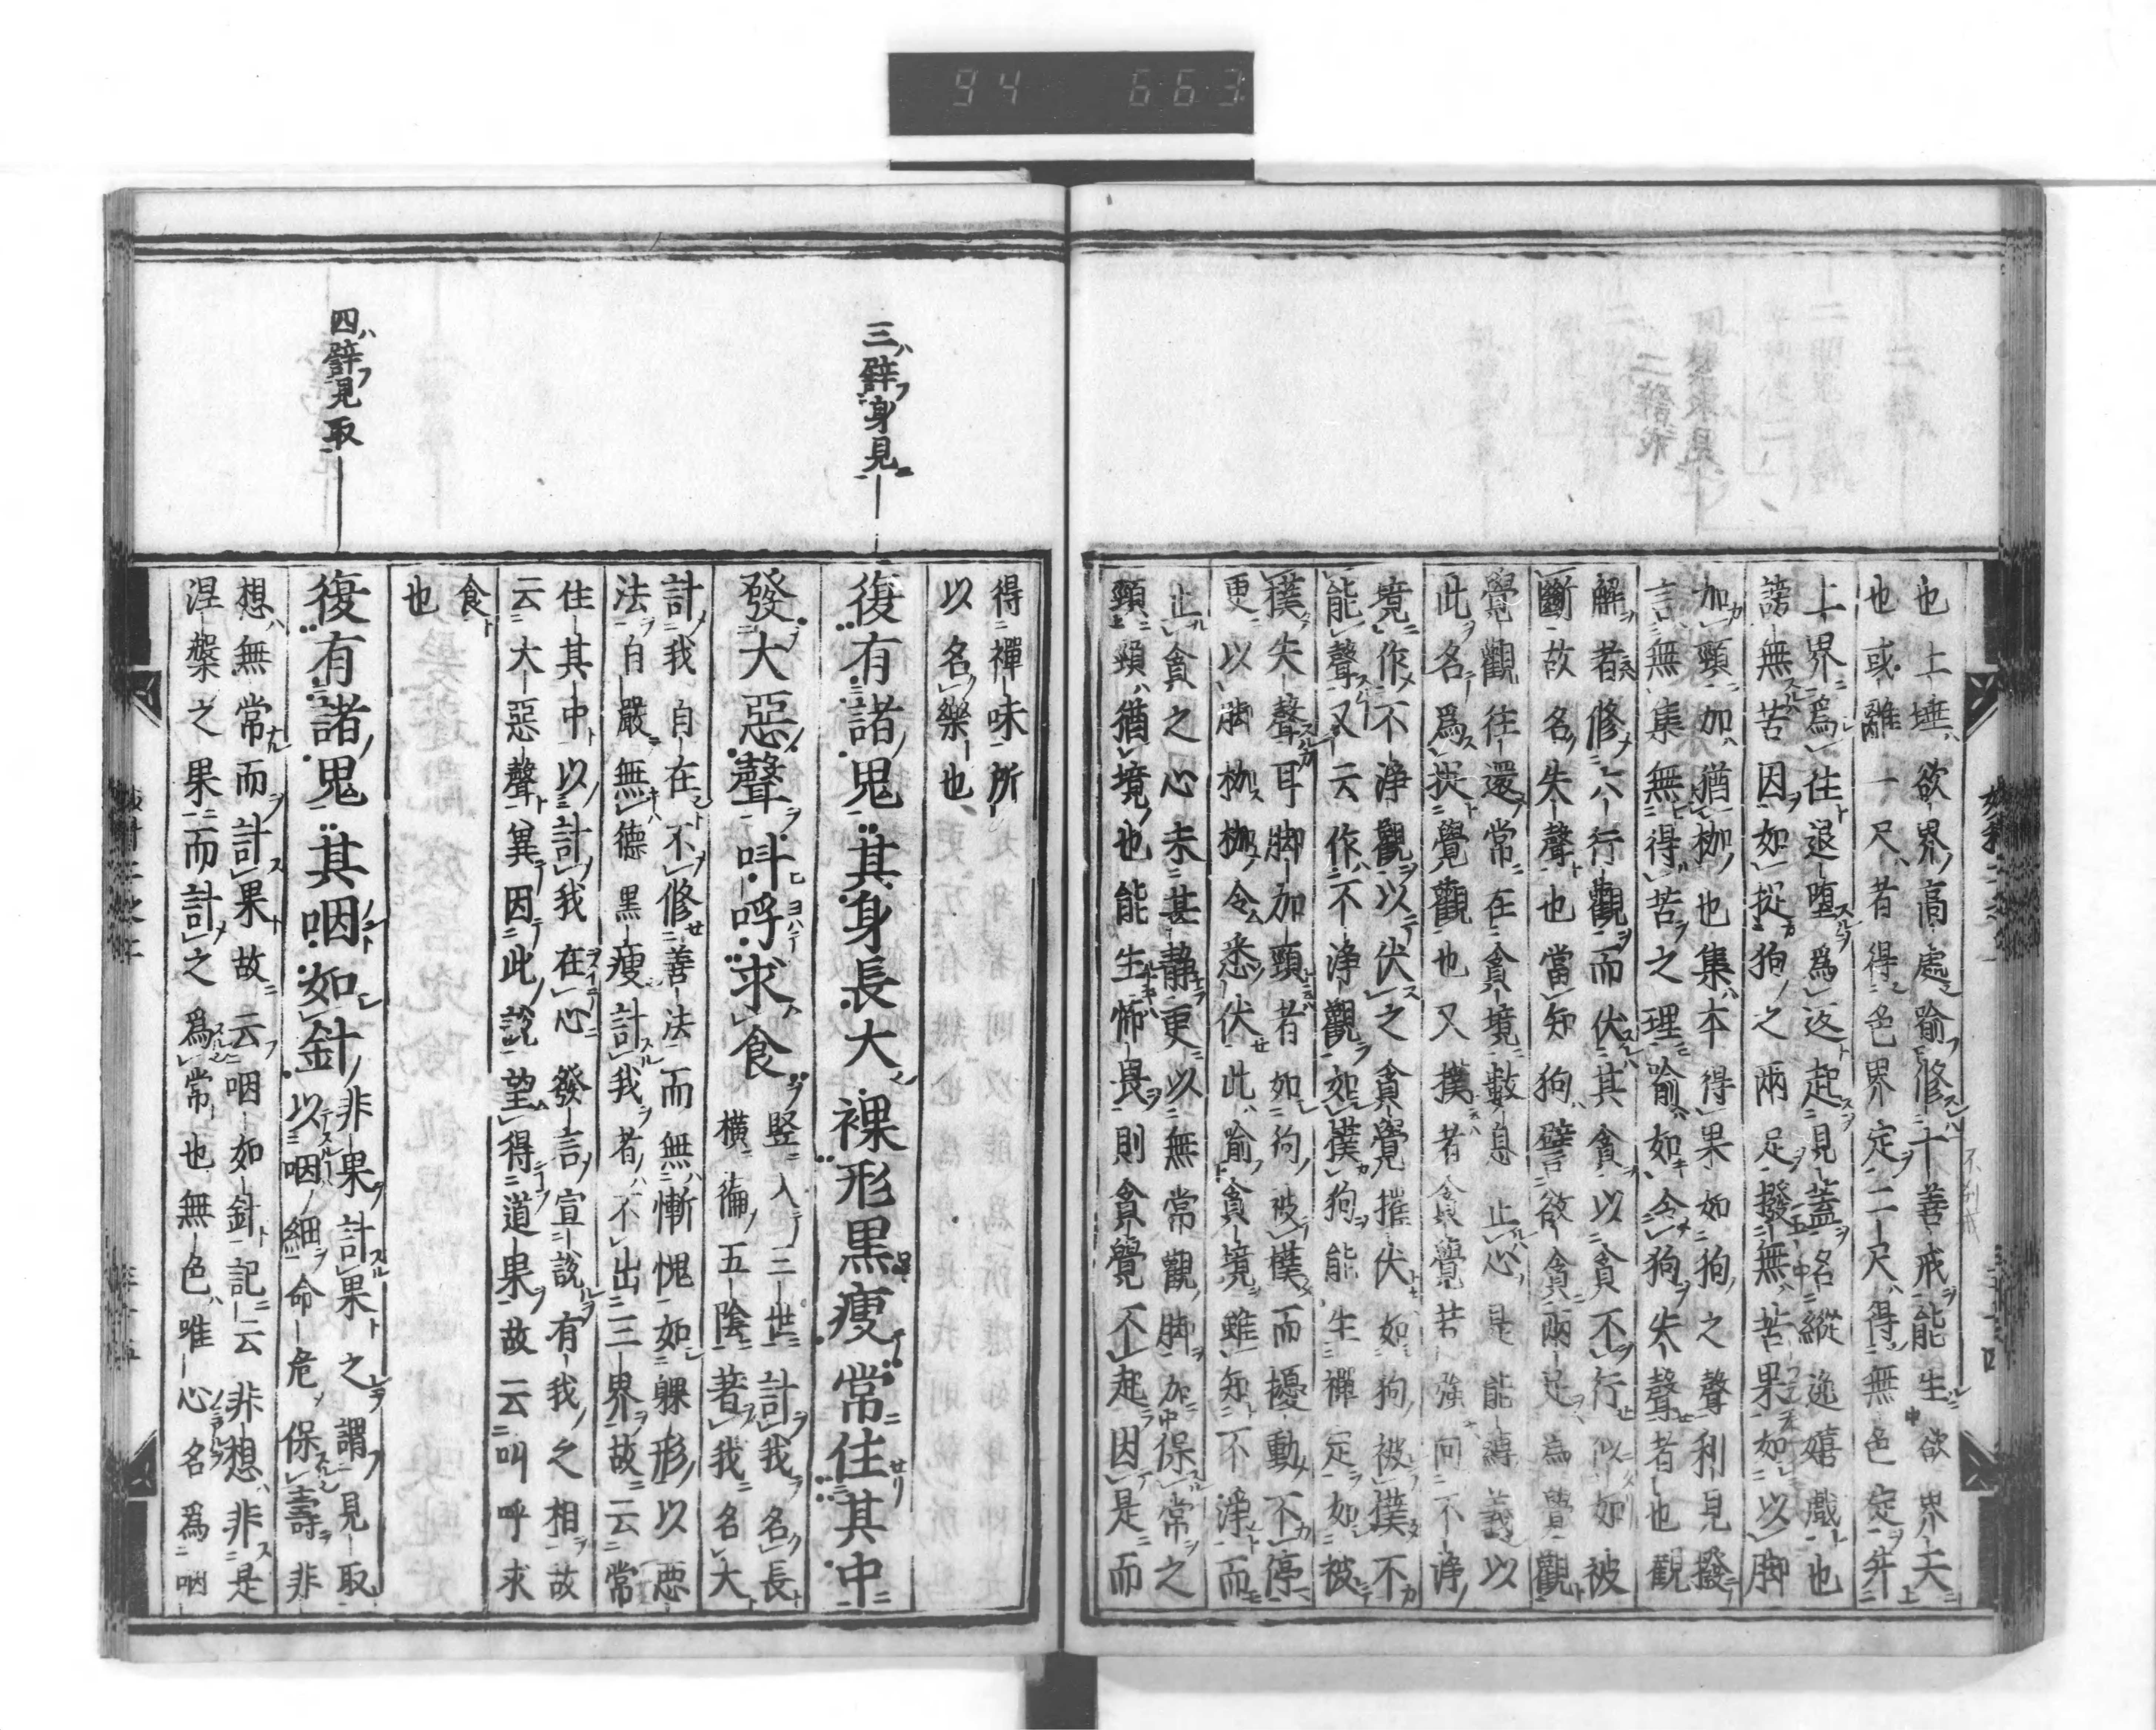 94 663
也土埵欲界高處喻修十善戒能生欲界天
也或離一尺者得色界定二尺得無色定并
上界爲往退墮爲返起見蓋名縱逸嬉戲也
謗無苦因如捉狗之兩足撥無苦果如以脚
加頸加猶枷也集本得果如狗之聲利見撥
言無集無得苦之理喻如令狗失聲者也觀
解者修六行觀而伏其貪以貪不行似如被
斷故名失聲也當知狗譬欲貪兩足爲覺觀
覺觀往還常在貪境數息止心是能縛義以
此名爲捉覺觀也又撲者貪覺若強向不淨
境作不淨觀以伏之貪覺摧伏如狗被撲不
能聲又云作不淨觀如撲狗能生禪定如被
撲失聲耳脚加頸者如狗被撲而擾動不停
更以脚枷枷令悉伏此喻貪境雖知不淨而
止貪之心未甚靜更以無常觀脚加保常之
頸頸猶境也能生怖畏則貪覺不起因是而
得禪味所
以名樂也
三譬身見
復有諸鬼其身長大裸形黒瘦常住其中
發大惡聲呌呼求食
竪入三世計我名長
橫徧五陰著我名大
計我自在不修善法而無慚愧如躶形以惡
法自嚴無德黑瘦計我者不出三界故云常
住其中以計我在心發言宣說有我之相故
云大惡聲異因此說望得道果故云叫呼求
食
也
四譬見取
復有諸鬼其咽如針
非果計果之謂見取
以咽細命危保壽非
想無常而計果故云咽如針記云非想非是
涅槃之果而計之爲常也無色唯心名爲咽